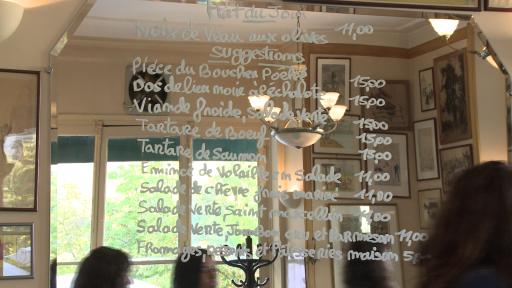 Plat du Jour
Noix de Veau aux olives 11,00
Suggestions
Pièce du Boucher Poelée 15,00
Dos de lieu noir échalote 15,00
Viande froide, salade verte
Tartare de Boeuf 15,00
Tartare de Saumon 15,00
Emincé de Volaille en Salade 11,00
Salade de chèvre
Salade verte, Saint marcellin
Salade verte, Jambon cru et Parmesan 11,00
Fromages, et Patisseries maison